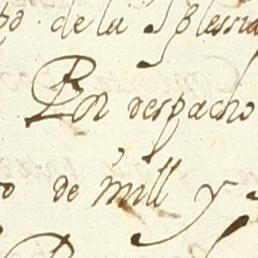 de la Iglessia
Por despacho
de mill y